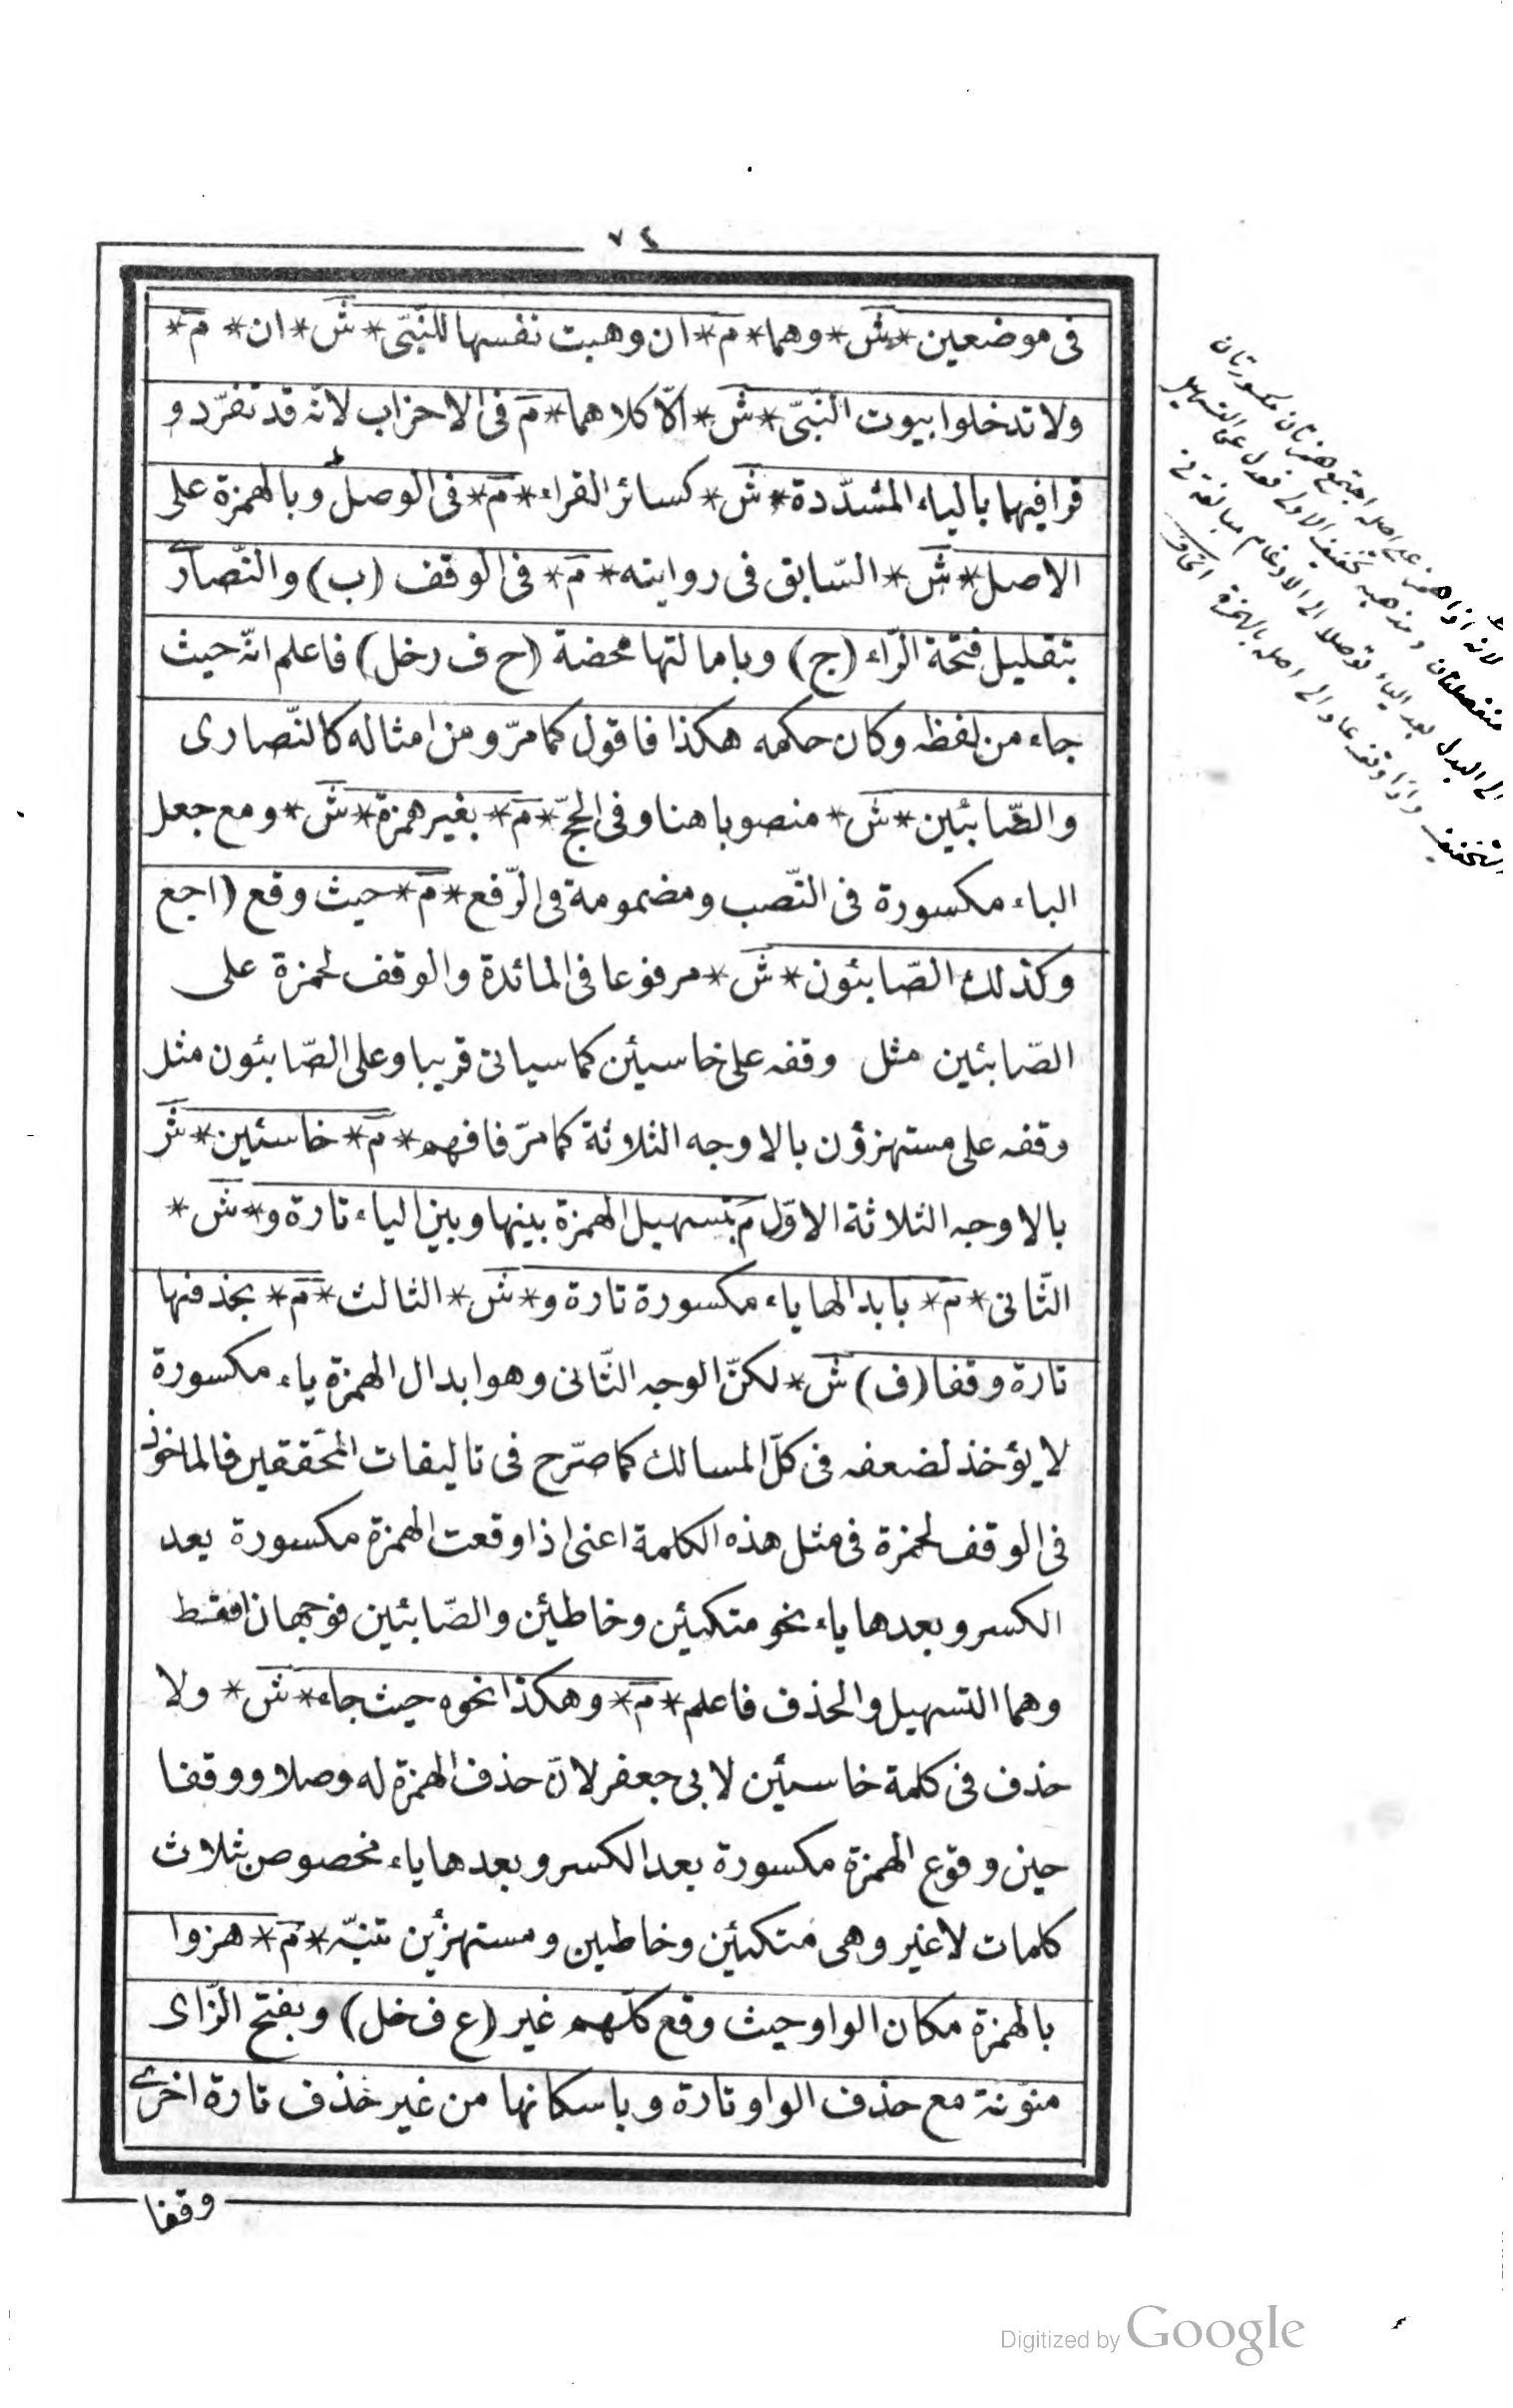 ٧٤
فى موضعين * ش * وهما * م * ان وهبت نفسها للنّبىّ * ش * ان * م *
ولا تدخلوا بيوت النّبىّ * ش * الّا كلاهما * م فى الاحزاب لانّه قد تفرّد و
قرا فيهما بالياء المشدّدة * ش * كسائر القراء * م * فى الوصل وبالهمزة على
الاصل * ش * السّابق فى روايته * م * فى الوقف (ب) والنّصارى
بتقليل فتحة الرّاء (ج) وبامالتها محضة (ح ف رخل) فاعلم انّه حيث
جاء من لفظه وكان حكمه هكذا فاقول كما مرّ ومن امثاله كالنّصارى
والصّابئين * ش * منصوبا هنا وفى الحجّ * م * بغير همزة * ش * ومع جعل
الباء مكسورة فى النّصب ومضمومة فى الرّفع * م * حيث وقع (ا جع
وكذلك الصّابئون * ش * مرفوعا فى المائدة والوقف لحمزة على
الصّابئين مثل وقفه على خاسئين كما سياتى قريبا وعلى الصّابئون مثل
وقفه على مستهزؤن بالاوجه الثلاثة كما مرّ فافهم * م * خاسئين * ش
بالاوجه الثلاثة الاوّل م بتسهيل الهمزة بينها وبين الياء تارة و * ش *
الثّانى * م * بابدالها ياء مكسورة تارة و * ش * الثالث * م * بحذفها
تارة وقفا (ف) ش * لكنّ الوجه الثّانى وهو ابدال الهمزة ياء مكسورة
لا يؤخذ لضعفه فى كلّ المسالك كما صرّح فى تاليفات المحقّقين فالماخوذ
فى الوقف لحمزة فى مثل هذه الكلمة اعنى اذا وقعت الهمزة مكسورة بعد
الكسر وبعدها ياء نحو متكئين وخاطئين والصّابئين فوجهان فقط
وهما التسهيل والحذف فاعلم * م * وهكذا نحوه حيث جاء * ش * ولا
حذف فى كلمة خاسئين لابى جعفر لانّ حذف الهمزة له وصلا ووقفا
حين وقوع الهمزة مكسورة بعد الكسر وبعدها ياء مخصوص بثلاث
كلمات لا غير وهى متكئين وخاطين ومستهزئين تنبّه * م * هزوا
بالهمزة مكان الواو حيث وقع كلّهم غير (ع ف خل) وبفتح الزّاى
منوّنة مع حذف الواو تارة وباسكانها من غير حذف تارة اخرى
وقفا
لانه اذا همز على اصله اجتمع همزتان مكسورتان
منفصلتان ومذهبه تخفيف الاولى فعدل عن التسهيل
الى البدل بعد الياء توصلا الى الادغام مبالغة فى
التخفيف واذا وقف عاد الى اصله بالهمزة
Digitized by Google